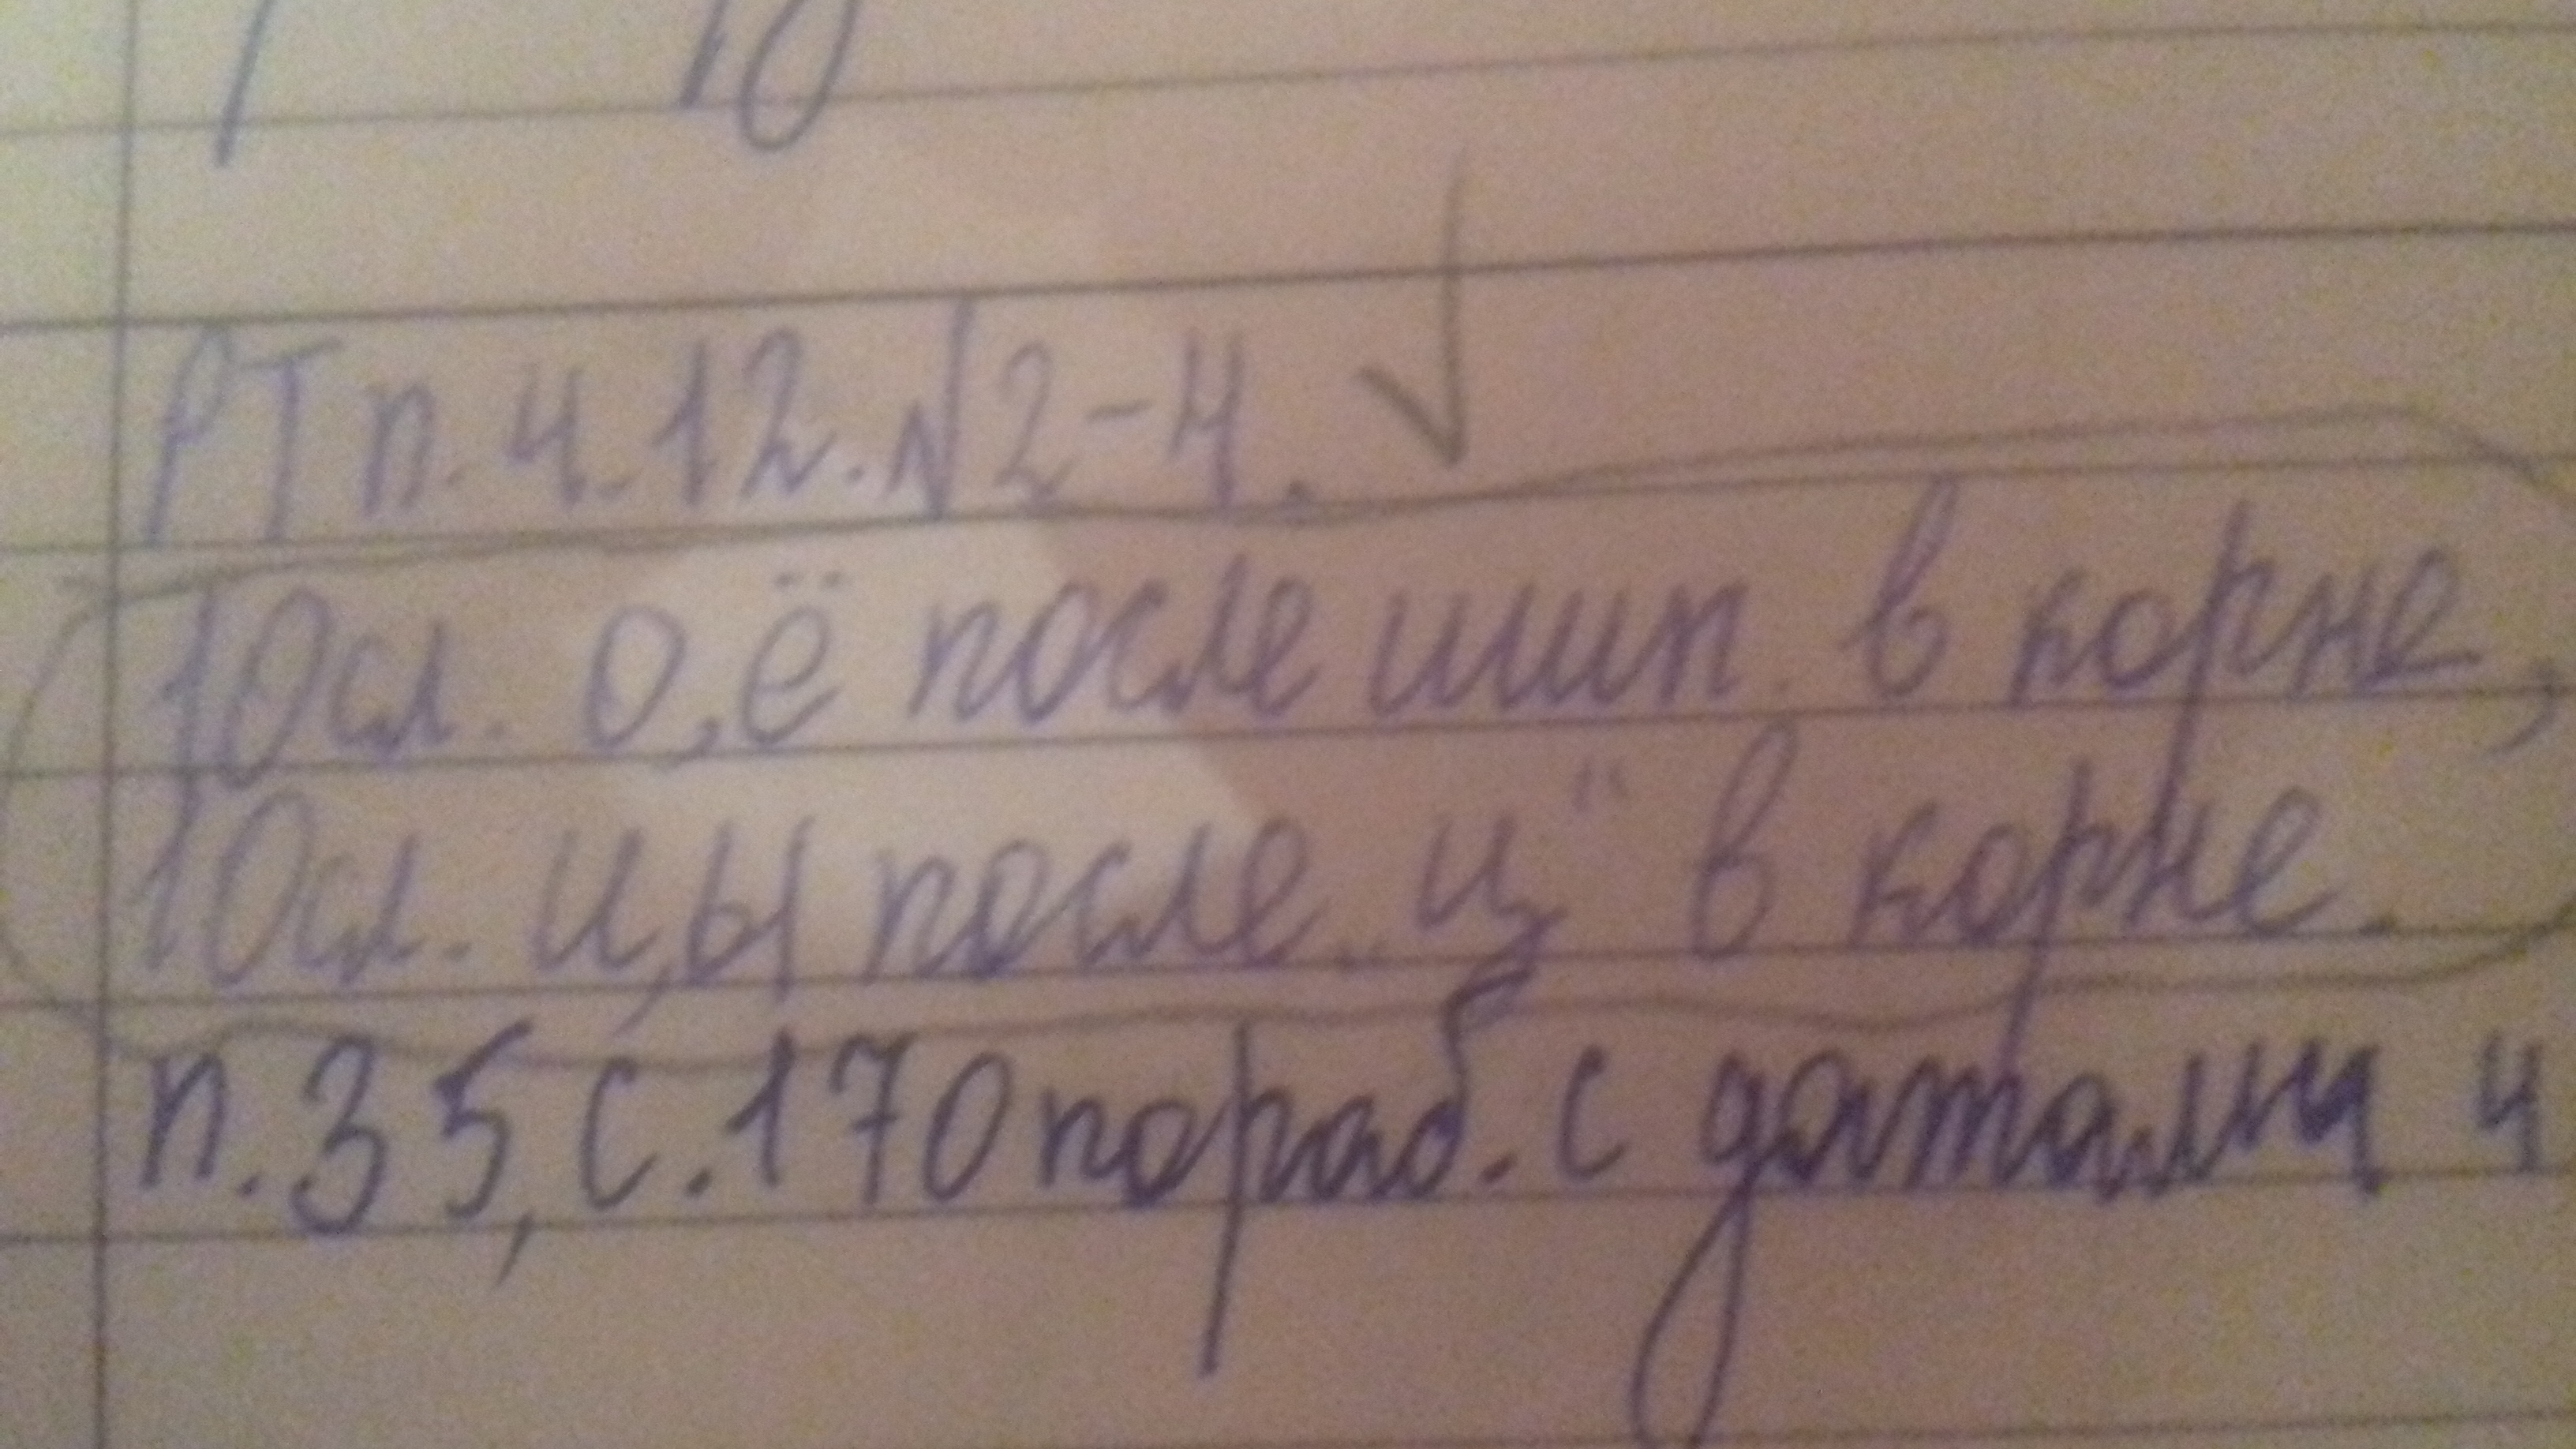 РТ п. 4.12. №2-4.
10сл. о, ё после шип. в корне,
10сл. и, ы после „ц" в корне.
п. 35, с. 170 пораб. с датами и